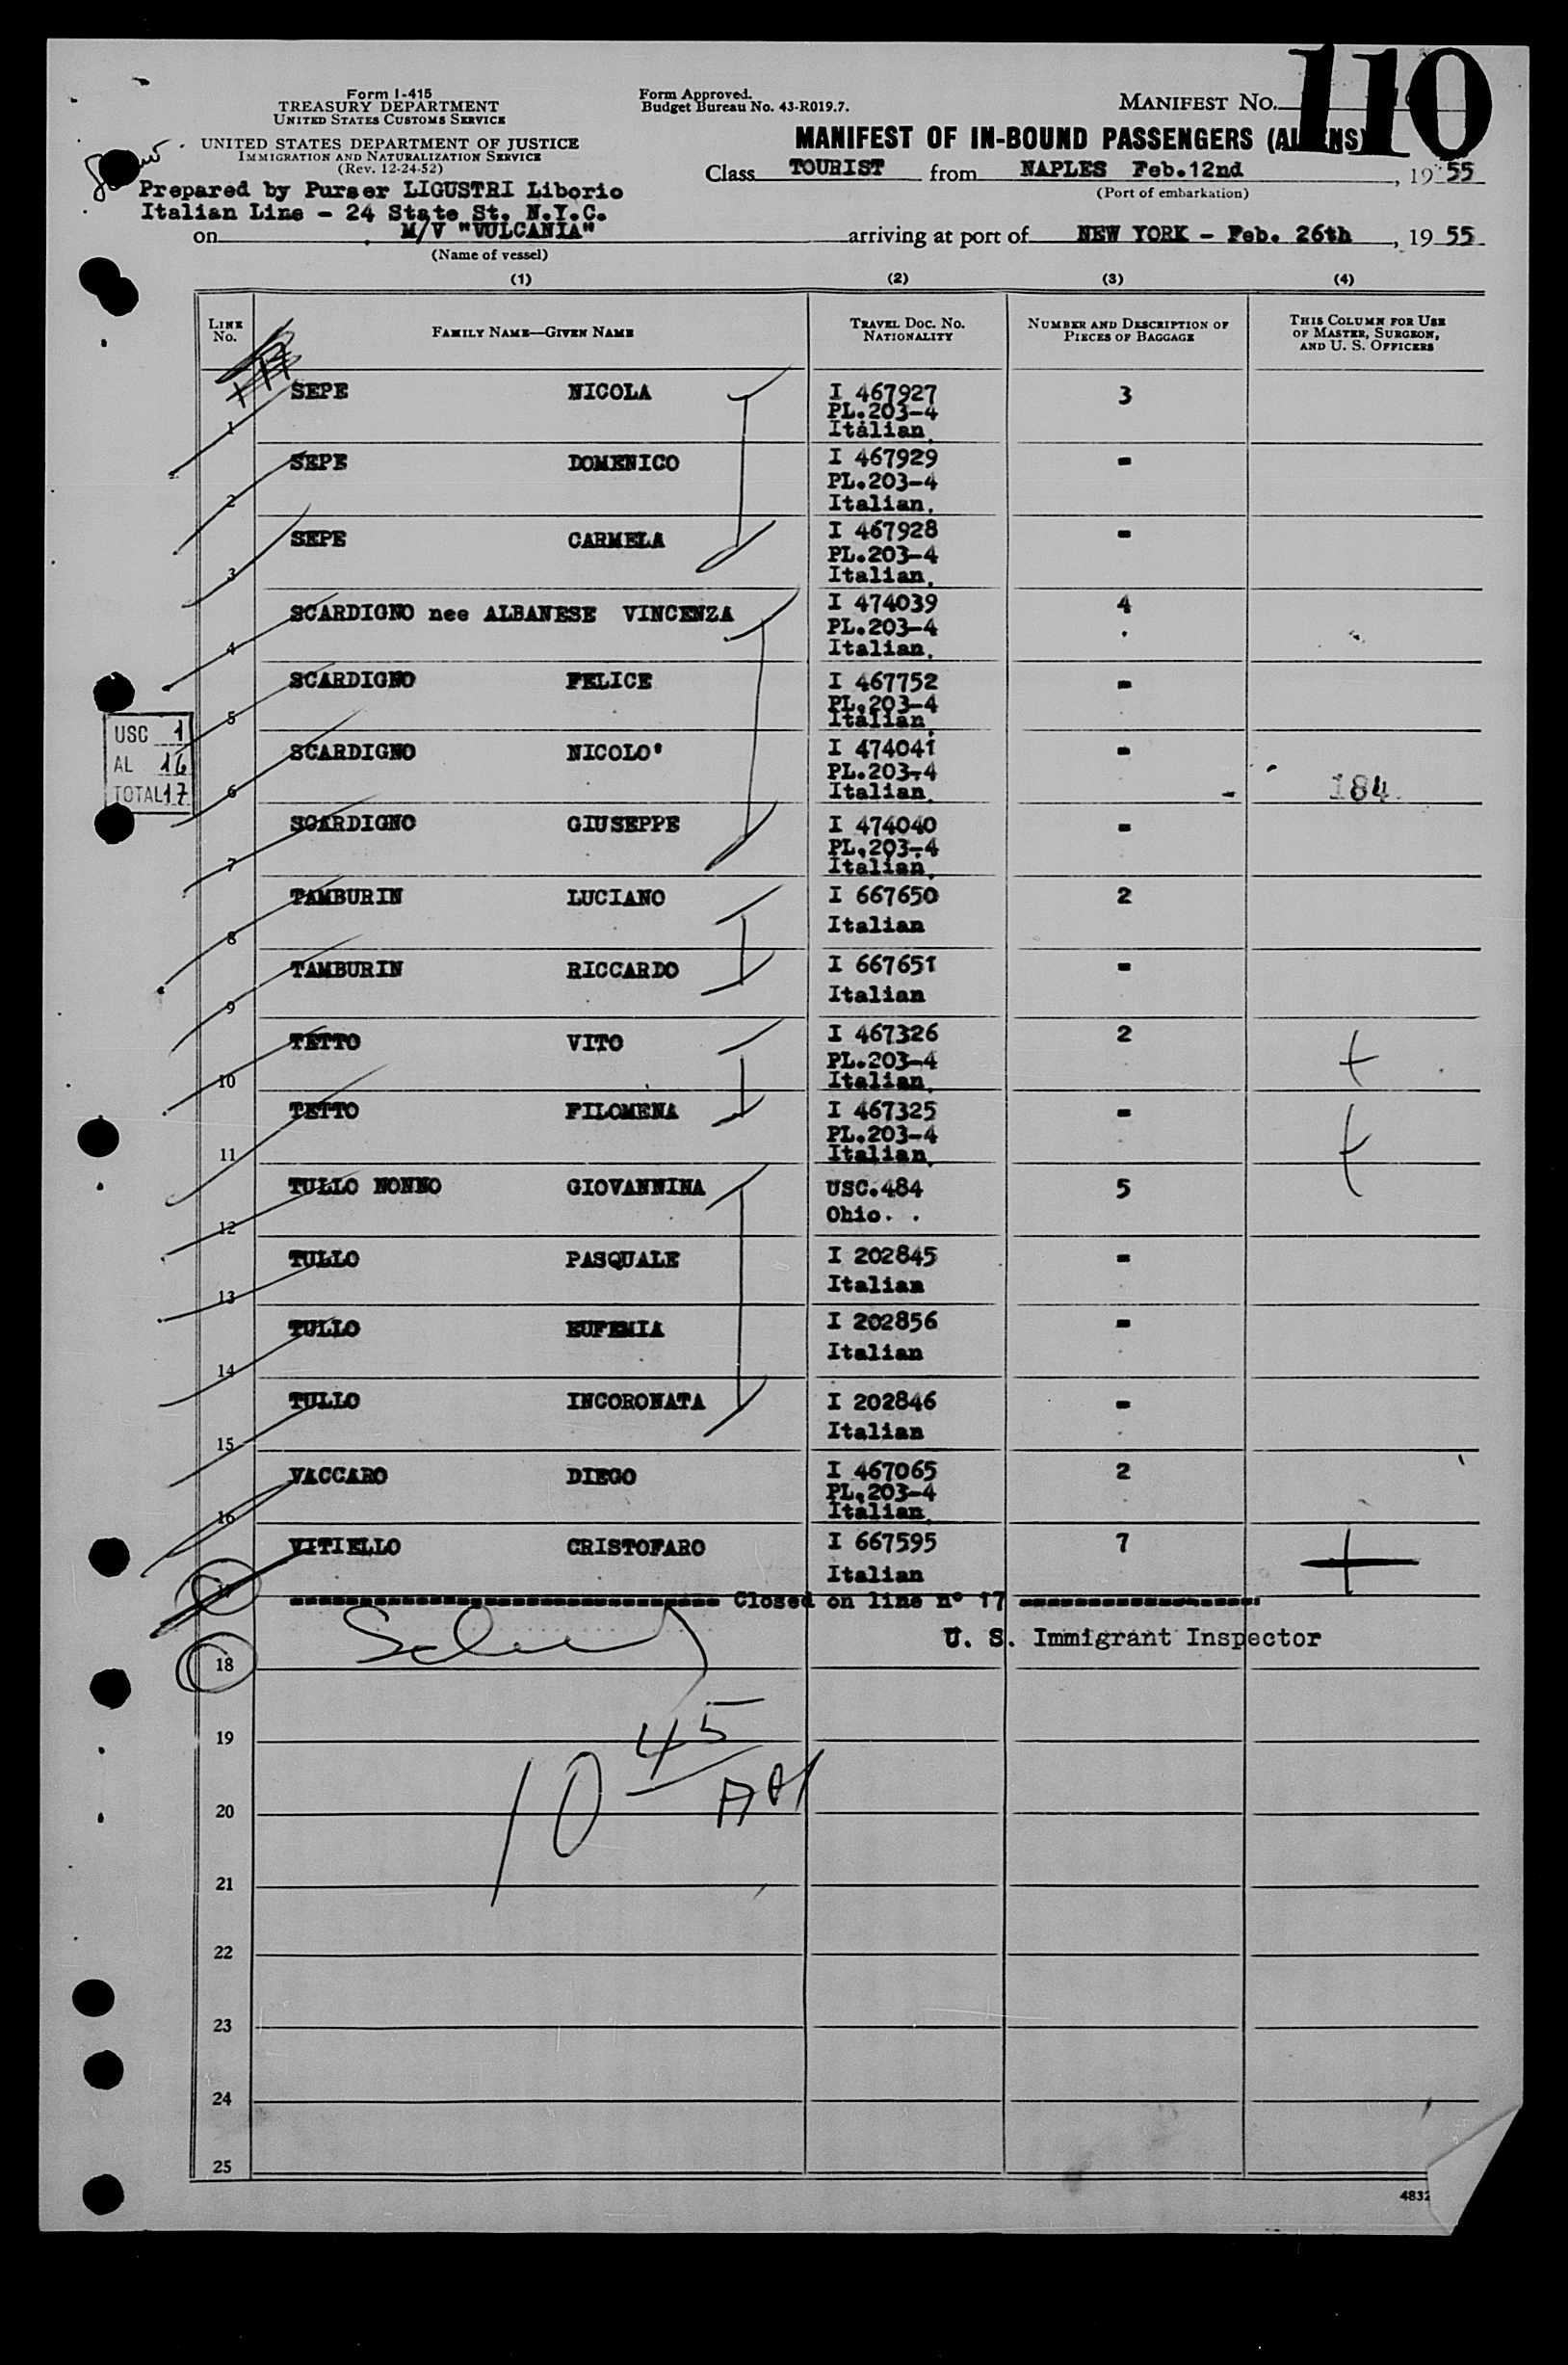 110
Form I-415
TREASURY DEPARTMENT
UNITED STATES CUSTOMS SERVICE
UNITED STATES DEPARTMENT OF JUSTICE
IMMIGRATION AND NATURALIZATION SERVICE
(Rev. 12-24-52)
Form Approved.
Budget Bureau No. 43-R019.7.
MANIFEST NO.
MANIFEST OF IN-BOUND PASSENGERS (ALIENS)
Class TOURIST from NAPLES Feb.12nd, 1955
(Port of embarkation)
Prepared by Purser LIGUSTRI Liborio
Italian Line - 24 State St. N.Y.C.
on M/V "VULCANIA" arriving at port of NEW YORK - Feb. 26th, 1955
(Name of vessel)
(1) (2) (3) (4)
LINE No. FAMILY NAME—GIVEN NAME TRAVEL DOC. NO. NATIONALITY NUMBER AND DESCRIPTION OF PIECES OF BAGGAGE THIS COLUMN FOR USE OF MASTER, SURGEON, AND U. S. OFFICERS
+17
1 SEPE NICOLA I 467927 3
PL.203-4
Italian.
2 SEPE DOMENICO I 467929 -
PL.203-4
Italian.
3 SEPE CARMELA I 467928 -
PL.203-4
Italian.
4 SCARDIGNO nee ALBANESE VINCENZA I 474039 4
PL.203-4
Italian.
5 SCARDIGNO FELICE I 467752 -
PL.203-4
Italian.
USC 1
AL 16
TOTAL 17
6 SCARDIGNO NICOLO' I 474041 -
PL.203-4
Italian. 184
7 SCARDIGNO GIUSEPPE I 474040 -
PL.203-4
Italian.
8 TAMBURIN LUCIANO I 667650 2
Italian
9 TAMBURIN RICCARDO I 667651 -
Italian
10 TETTO VITO I 467326 2 +
PL.203-4
Italian.
11 TETTO FILOMENA I 467325 - +
PL.203-4
Italian.
12 TULLO NONNO GIOVANNINA USC.484 5
Ohio.
13 TULLO PASQUALE I 202845 -
Italian
14 TULLO EUFEMIA I 202856 -
Italian
15 TULLO INCORONATA I 202846 -
Italian
16 VACCARO DIEGO I 467065 2
PL.203-4
Italian.
17 VITIELLO CRISTOFARO I 667595 7 +
Italian
Closed on line n° 17
U. S. Immigrant Inspector
18
19
10 45 AM
20
21
22
23
24
25
4832